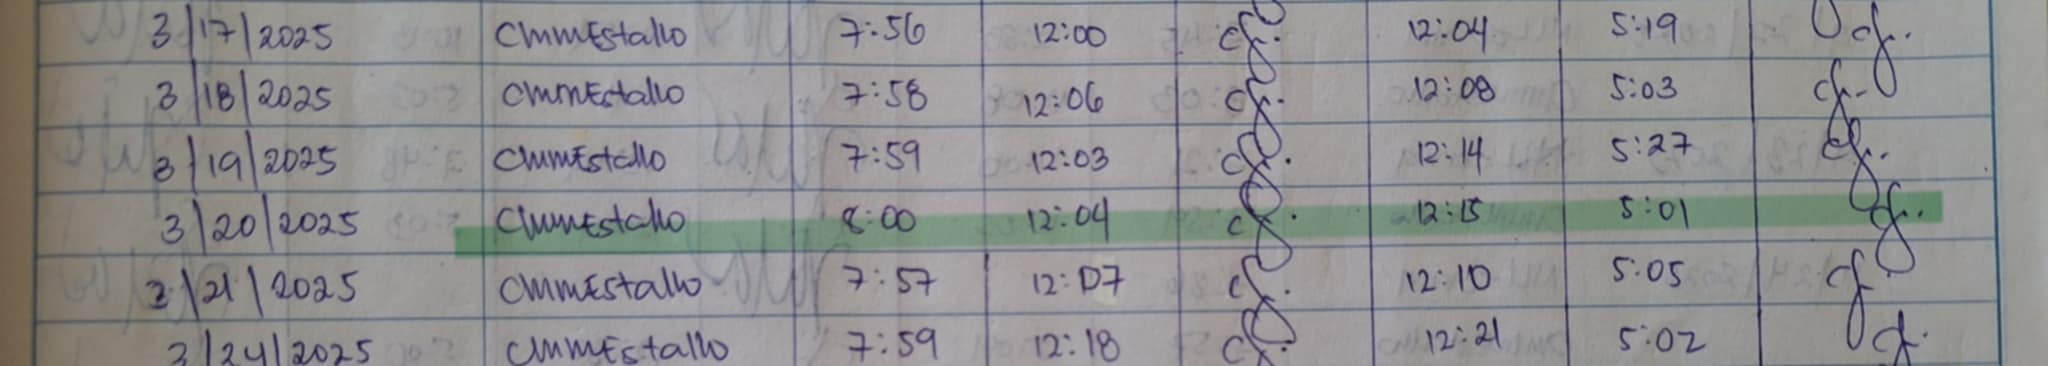 3/17/2025 CMMEstallo 7:56 12:00 cf. 12:04 5:19 cf.
3/18/2025 CMMEstallo 7:58 12:06 cf. 12:08 5:03 cf.
3/19/2025 CMMEstallo 7:59 12:03 cf. 12:14 5:27 cf.
3/20/2025 CMMEstallo 8:00 12:04 cf. 12:15 5:01 cf.
3/21/2025 CMMEstallo 7:57 12:07 cf. 12:10 5:05 cf.
3/24/2025 CMMEstallo 7:59 12:18 cf. 12:21 5:02 cf.